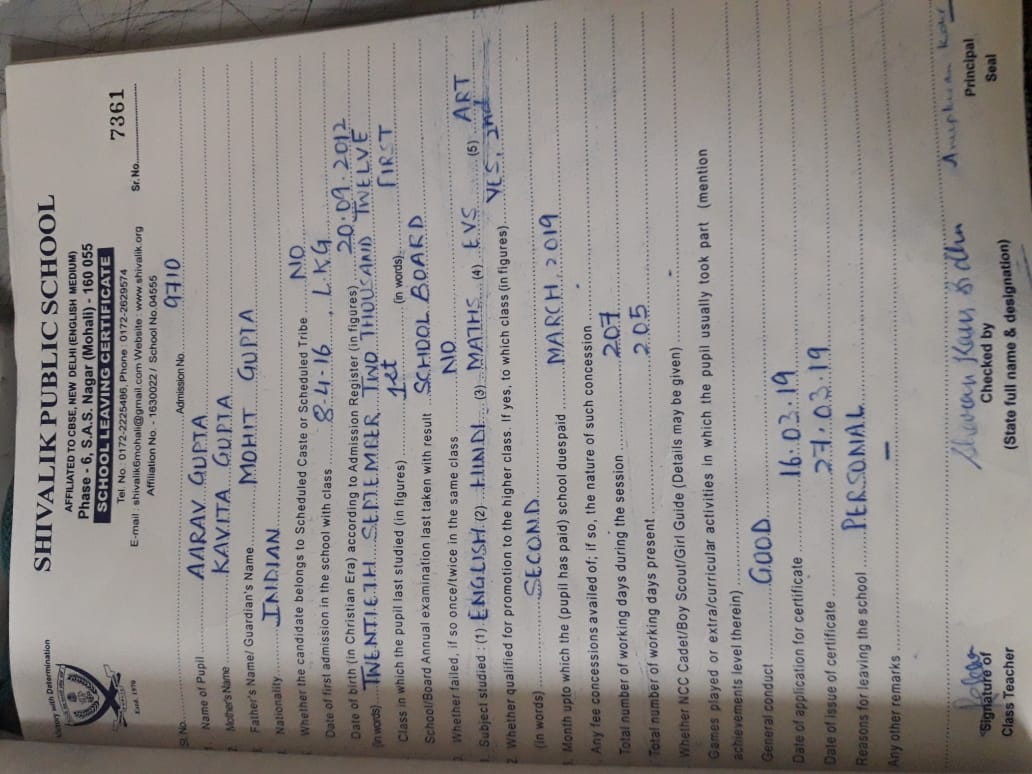 Victory with Determination
Estd. 1970
SHIVALIK PUBLIC SCHOOL
AFFILIATED TO CBSE, NEW DELHI (ENGLISH MEDIUM)
Phase - 6, S.A.S. Nagar (Mohali) - 160 055
SCHOOL LEAVING CERTIFICATE
Tel. No. 0172-2225486, Phone : 0172-2629574
E-mail : shivalik6mohali@gmail.com Website : www.shivalik.org
Affiliation No. - 1630022 / School No.04555
Sr. No. 7361
Sl. No. Admission No. 9710
Name of Pupil AARAV GUPTA
2. Mother's Name KAVITA GUPTA
Father's Name/ Guardian's Name MOHIT GUPTA
Nationality INDIAN
Whether the candidate belongs to Scheduled Caste or Scheduled Tribe NO
Date of first admission in the school with class 8-4-16, LKG
Date of birth (in Christian Era) according to Admission Register (in figures) 20.09.2012
(in words) TWENTIETH SEPTEMBER TWO THOUSAND TWELVE
Class in which the pupil last studied (in figures) 1st (in words) FIRST
School/Board Annual examination last taken with result SCHOOL BOARD
Whether failed, if so once/twice in the same class NO
1. Subject studied : (1) ENGLISH (2) HINDI (3) MATHS (4) EVS (5) ART
2. Whether qualified for promotion to the higher class. If yes, to which class (in figures) YES, 2nd
(in words) SECOND
Month upto which the (pupil has paid) school duespaid MARCH, 2019
Any fee concessions availed of; if so, the nature of such concession
Total number of working days during the session 207
Total number of working days present 205
Whether NCC Cadet/Boy Scout/Girl Guide (Details may be given)
Games played or extra/curricular activities in which the pupil usually took part (mention
achievements level therein)
General conduct GOOD
Date of application for certificate 16.03.19
Date of issue of certificate 27.03.19
Reasons for leaving the school PERSONAL
Any other remarks —
Signature of
Class Teacher
Checked by
(State full name & designation)
Principal
Seal